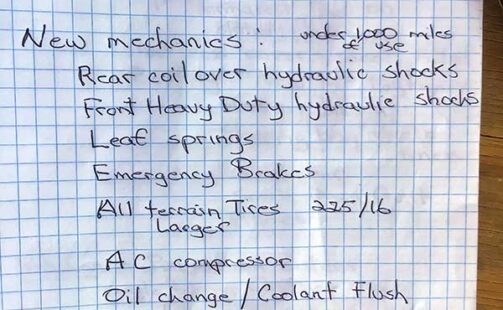 New mechanics: under 1000 miles
of use
Rear coilover hydraulic shocks
Front Heavy Duty hydraulic shocks
Leaf springs
Emergency Brakes
All terrain Tires 225/16
Larger
AC compressor
Oil change / Coolant Flush